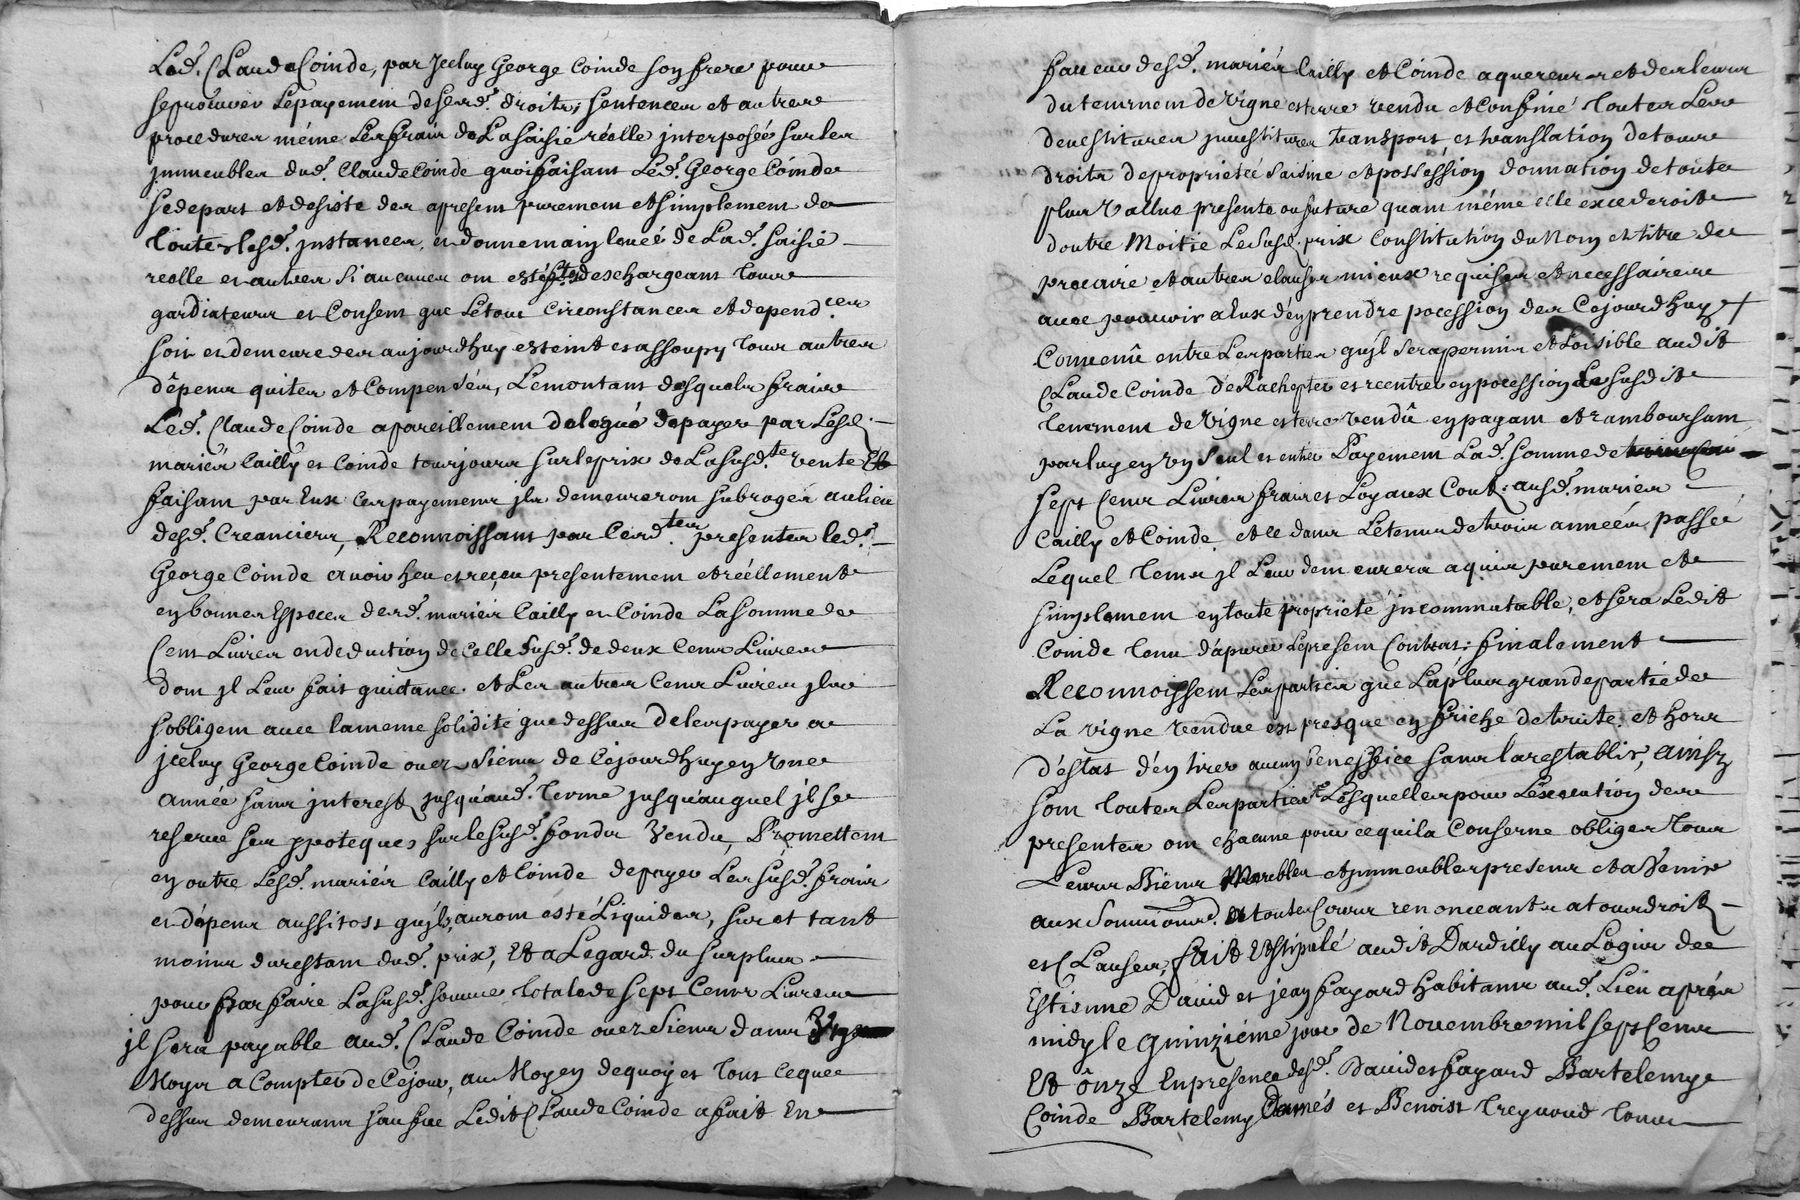 Led. Claude Coinde, par Jceluy George Coinde son frere pour
se prouver le payement desesd. droits, sentences et autres
procedures même les frais de La saisie réelle interposée sur les
jmmeubles dud. Claude Coinde quoi faisant Led. George Coinde
se depart et desiste des apresent purement et simplement de
toutes lesd. jnstances, en donne main levée de Lad. saisie
reelle et autres si aucunes ont esté deschargeant tous
gardiateurs et Consent que le tout Circonstances et depend.ces
soit et demeure des aujourdhuy esteint et assoupy tous autres
dépens quites et Compensés, Le montant desquels fraix
Led. Claude Coinde a pareillement delegué de payer par Lesd.
mariés Cailly et Coinde tousjours sur le prix de La susd.te vente Et
faisant par Eux Ces payements jls demeureront subrogés au lieu
desd. Creanciers, Reconnoissant par Cesd.tes presentes led.
George Coinde avoir heu et reçeu presentement et réellement
en bonnes Especes desd. mariés Cailly et Coinde La somme de
Cent Livres en deduction de celle susd. de deux Cens Livres
dont jl Leur fait quictance et Les autres Cens Livres jls
sobligent avec la meme solidité que dessus de les payer a
jceluy George Coinde ou ez siens de Cejourdhuy en Une
année sans jnterest jusqu'aud. terme jusqu'auquel jl se
reserve ses ypoteques sur le susd. fonds Vendu, Promettent
en outre Lesd. mariés Cailly et Coinde de payer Les susd. frais
et dépens aussitost qu'jls auront esté Liquides, sur et tant
moins du restant dud. prix, Et a Legard du surplus
pour parfaire La susd. somme totale de sept Cens Livres
jl sera payable aud. Claude Coinde ou ez siens dans
Moys a Compter de Cejour, au Moyen dequoy et tout ceque
dessus demeurant sauf que Ledit Claude Coinde a fait En
faveur desd. mariés Cailly et Coinde aquereurs et des leurs
du tennement de Vigne et terre vendu et Confiné toutes Les
devestitures jnvestitures transport, et translation de tous
droits de proprieté saisine et possession donnation de toute
plus Vallue presente ou future quant même elle excederoit
doutre Moitie Le susd. prix Constitution du Nom et titre de
precaire et autres clauses mieux requises et necessaires
avec pouvoir a Eux d'en prendre pocession des Cejourdhuy +
Convenû entre Les parties qu'jl sera permis et Loisible audit
Claude Coinde de Rachepter et rentrer en pocession Le susdit
tenement de Vigne et terre vendû en payant et rambourssant
par luy en Un seul et entier Payement Lad. somme de
sept Cens Livres frais et Loyaux Cout. ausd. mariés
Cailly et Coinde et ce dans Le temps de trois années, passé
Lequel tems jl Leur demeurera aquis purement et
simplement en toute proprieté jncommutable, et sera Ledit
Coinde tenu d'apurer Le present Contrat; finalement
Reconnoissent Les parties que La plus grande partie de
La vigne Vendue est presque en friche detruite et hors
d'estat d'en tirer aucun beneffice sans la restablir, ainsy
sont toutes Les parties Lesquelles pour L'execution des
presentes ont chacune pour ce qui la Conserne obliges tous
Leurs Biens Meubles et jmmeubles presens et a Venir
aux soumions. et toutes Cours renonceants a tous droits
et Clauses, fait et stipulé audit Dardilly au Logis de
Estienne David et jean fayard habitans aud. Lieu aprés
midy le quinziéme jour de Novembre mil sept Cens
Et ônze En presence desd. David et fayard Bartelemy
Coinde Bartelemy Damés et Benoist Treynoud tous